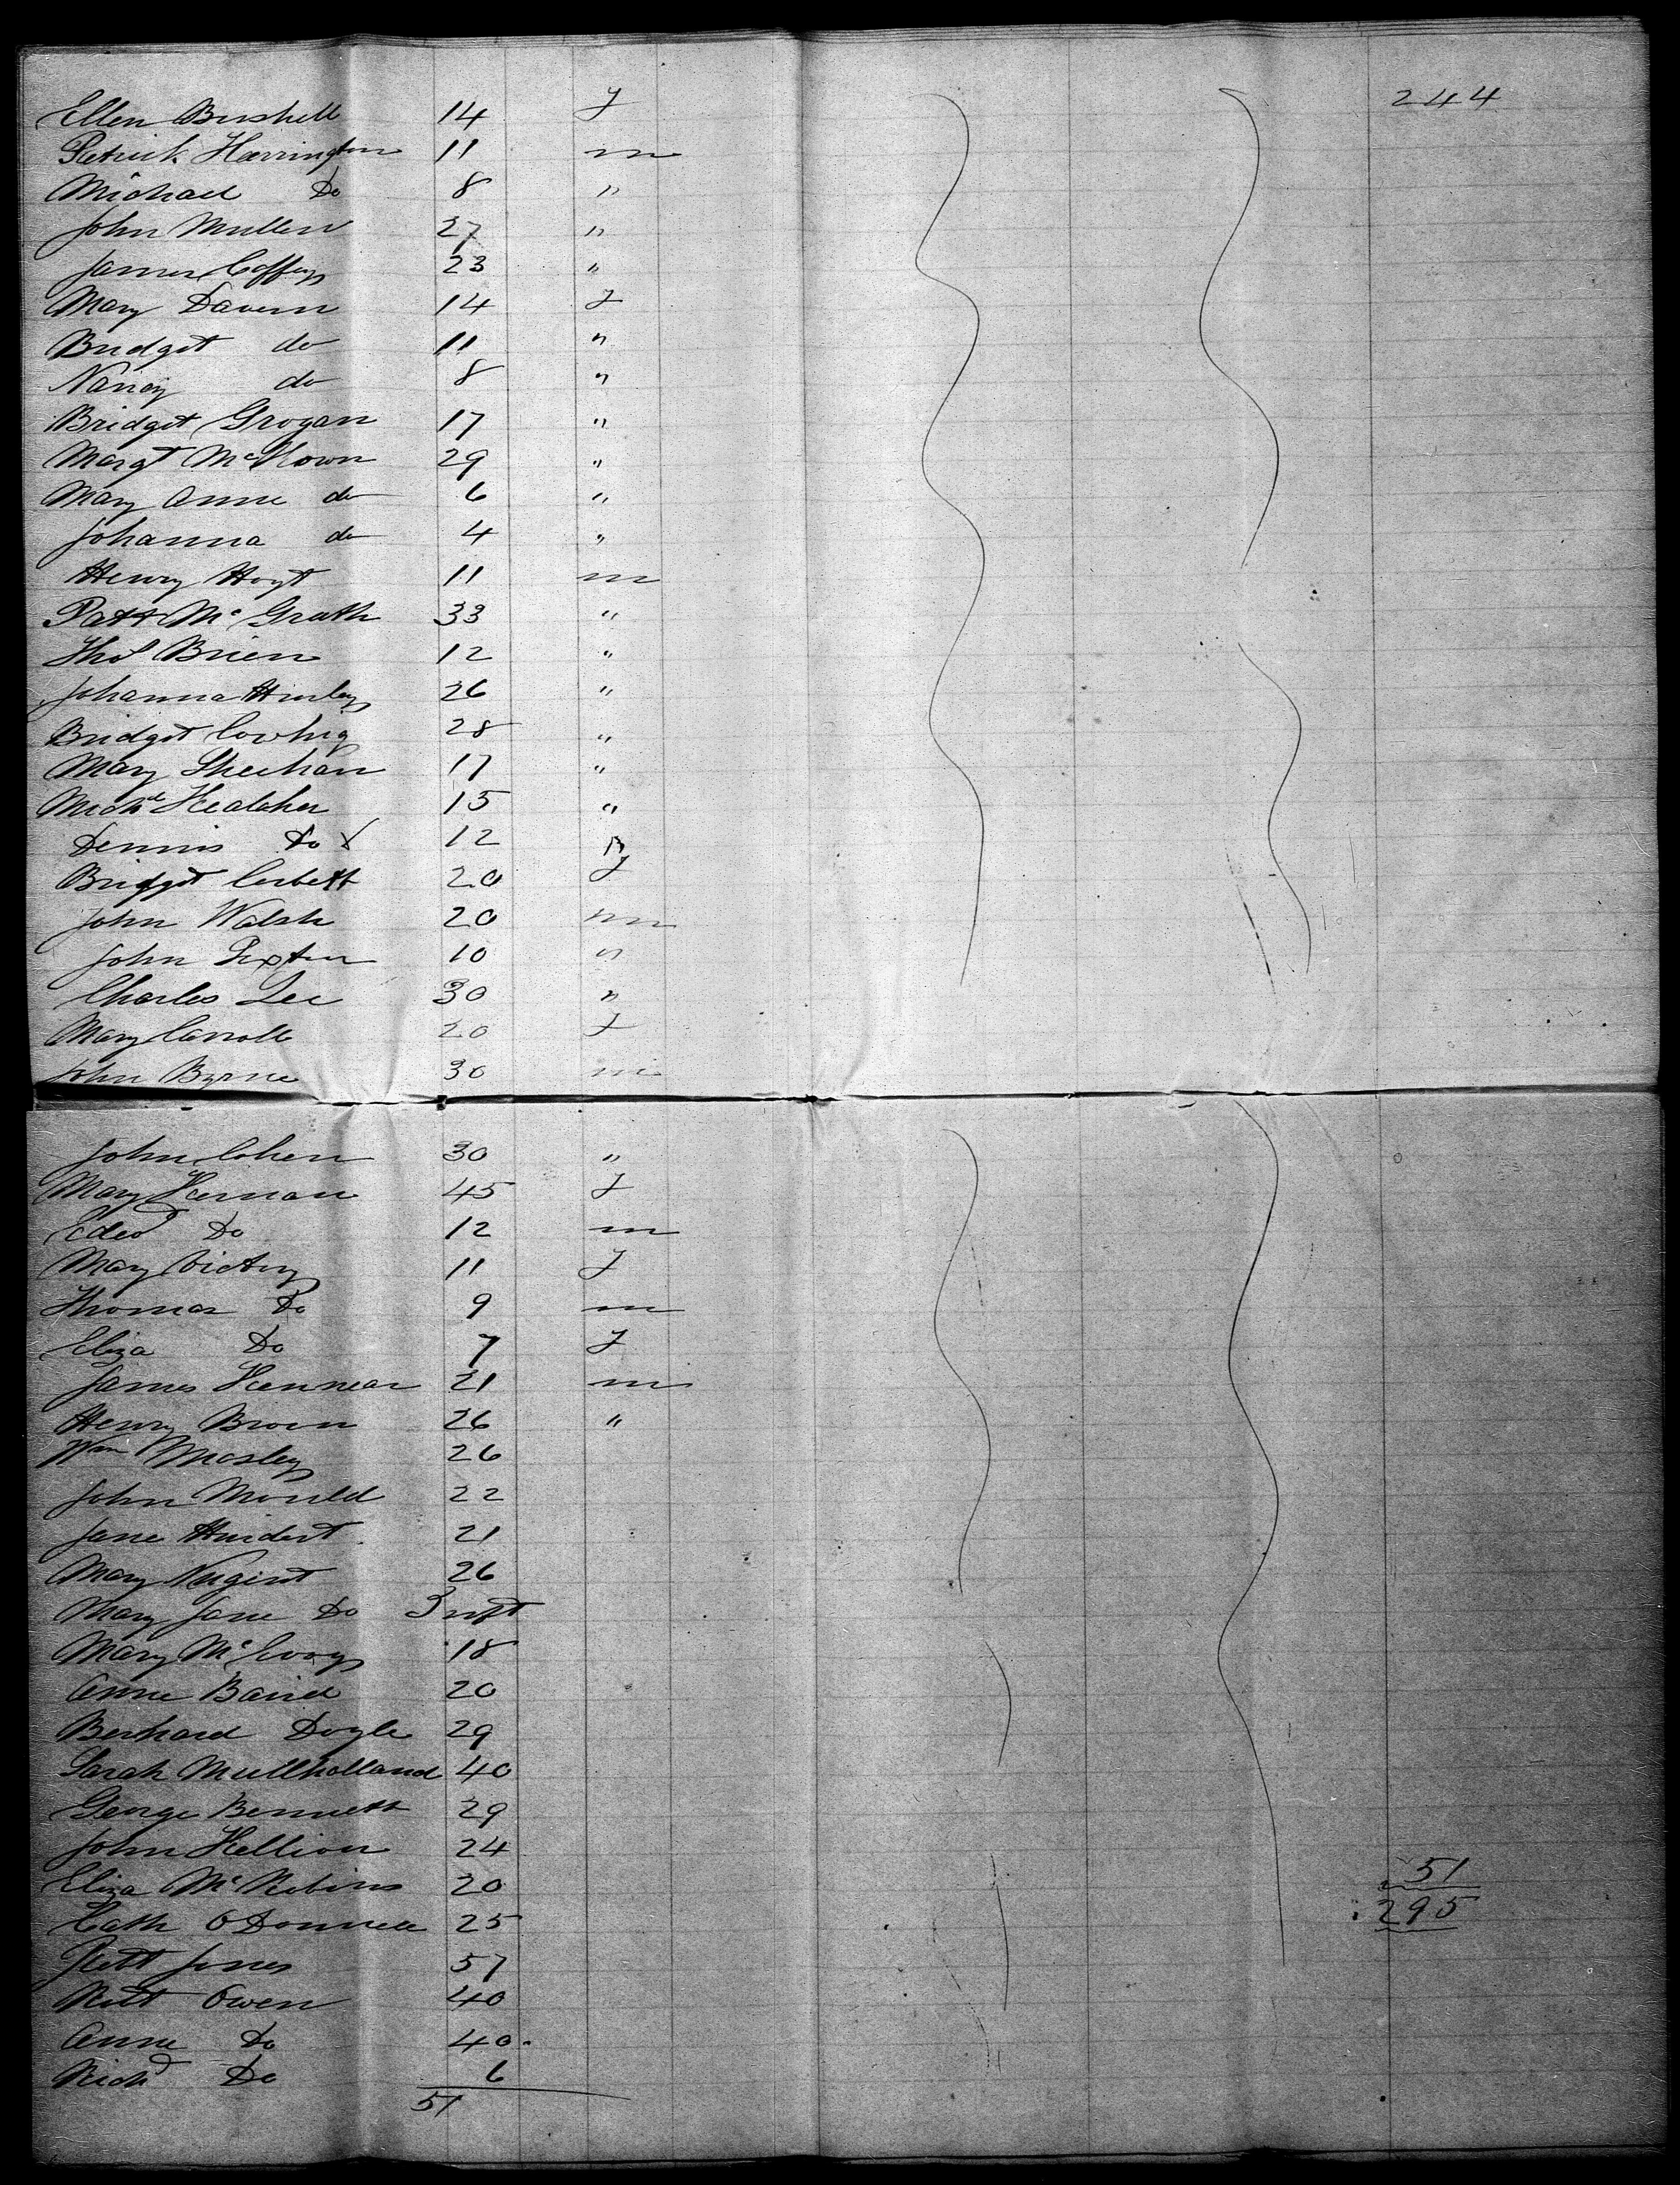 244
Ellen Bushell 14 f
Patrick Harrington 11 m
Michael Do 8 "
John Mullen 27 "
James Coffey 23 "
Mary Davern 14 f
Bridget do 11 "
Nancy do 8 "
Bridget Grogan 17 "
Margt 29 "
Mary Anne do 6 "
Johanna do 4 "
Henry Hoyt 11 m
Patt McGrath 33 "
Thos Brien 12 "
Johanna Hurley 26 "
Bridget Cowhig 28 "
Mary Sheehan 17 "
Michl Kealaher 15 "
Dennis Do X 12 "
Bridget Corbett 20 f
John Walsh 20 m
John 10 "
Charles Lee 30 "
Mary Carroll 20 f
John Byrne 30 m
John Cohen 30 "
Mary Kernan 45 f
Edwd Do 12 m
Mary Victory 11 f
Thomas Do 9 m
Eliza Do 7 f
James Kennear 21 m
Henry Brown 26 "
Wm Mosley 26
John Mould 22
Jane 21
Mary Nugent 26
Mary Jane Do 3 inft
Mary McEvoy 18
Anne Baird 20
Bernard Doyle 29
Sarah Mullholland 40
George Bennett 29
John Hellion 24
51
Eliza McRobins 20
295
Cath ODonnell 25
Robt Jones 57
Robt Owen 40
Anne Do 40
Richd Do 6
51